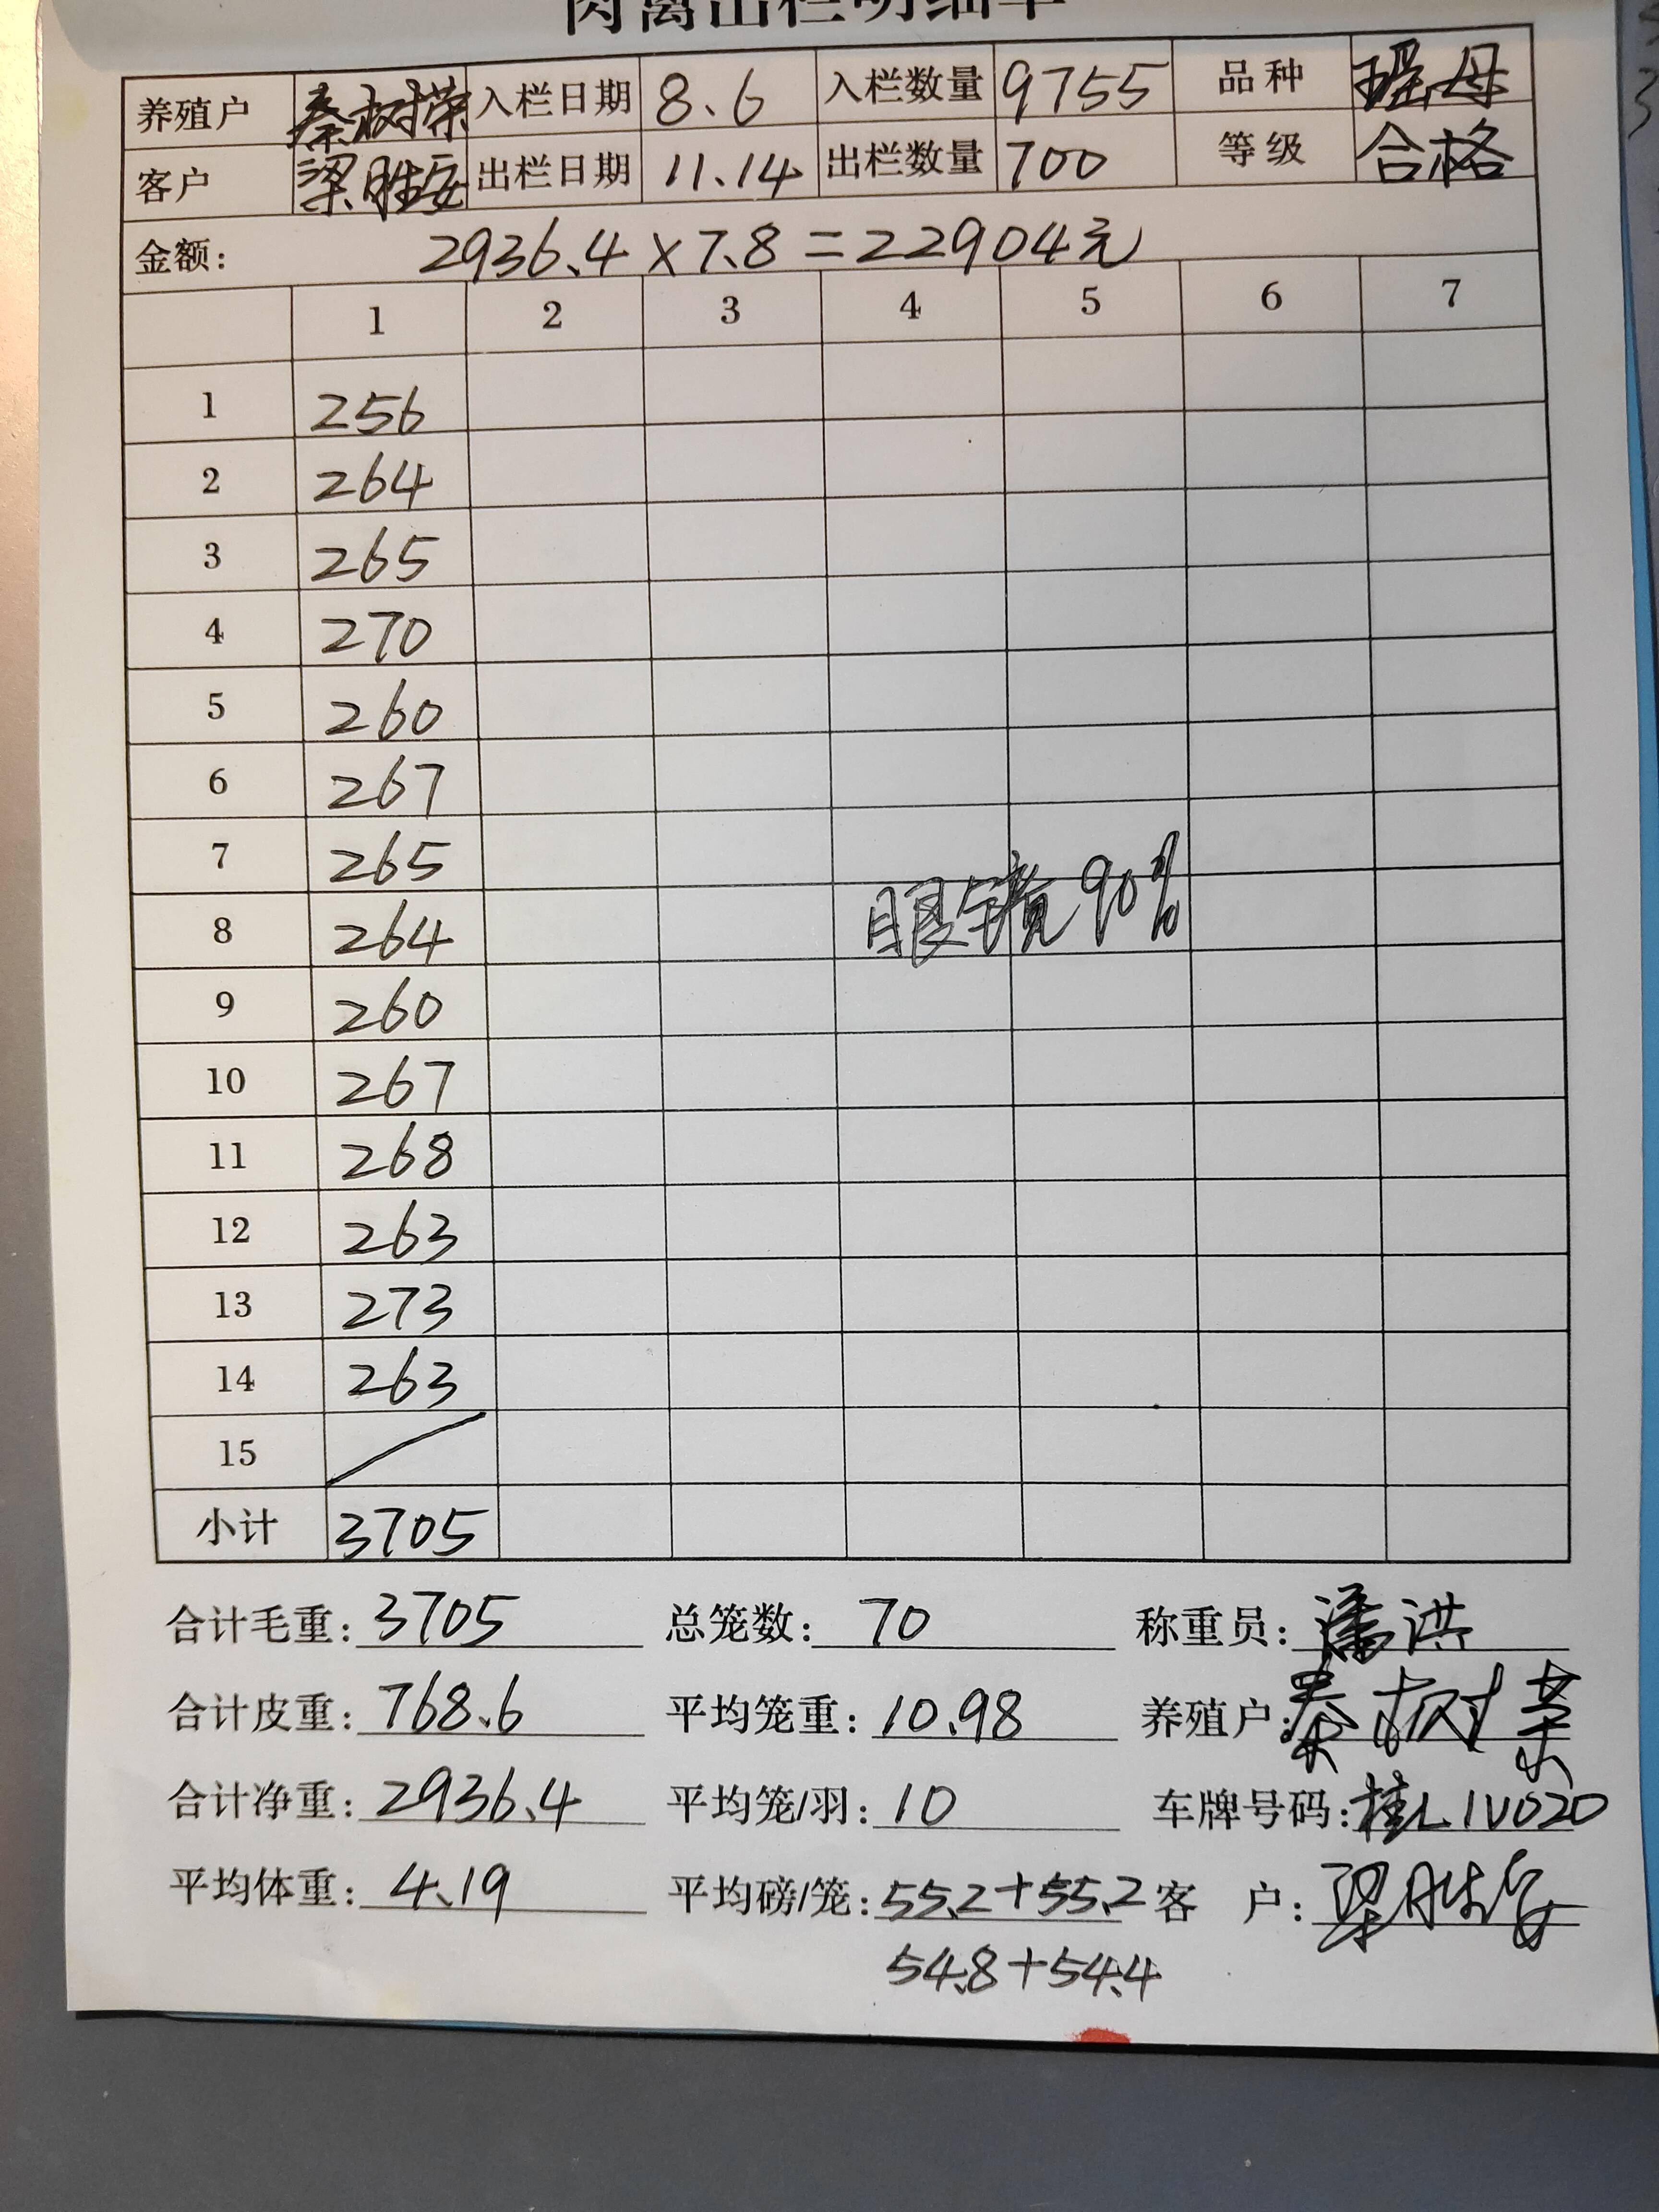 肉禽出栏明细单
养殖户 秦树荣 入栏日期 8.6 入栏数量 9755 品种 瑶母
客户 梁胜安 出栏日期 11.14 出栏数量 700 等级 合格
金额: 2936.4×7.8=22904元
1 2 3 4 5 6 7
1 256
2 264
3 265
4 270
5 260
6 267
7 265
8 264
眼镜90%
9 260
10 267
11 268
12 263
13 273
14 263
15
小计 3705
合计毛重: 3705 总笼数: 70 称重员: 潘洪
合计皮重: 768.6 平均笼重: 10.98 养殖户: 秦树荣
合计净重: 2936.4 平均笼/羽: 10 车牌号码: 桂L1V020
平均体重: 4.19 平均磅/笼: 55.2+55.2 客 户: 梁胜安
54.8+54.4